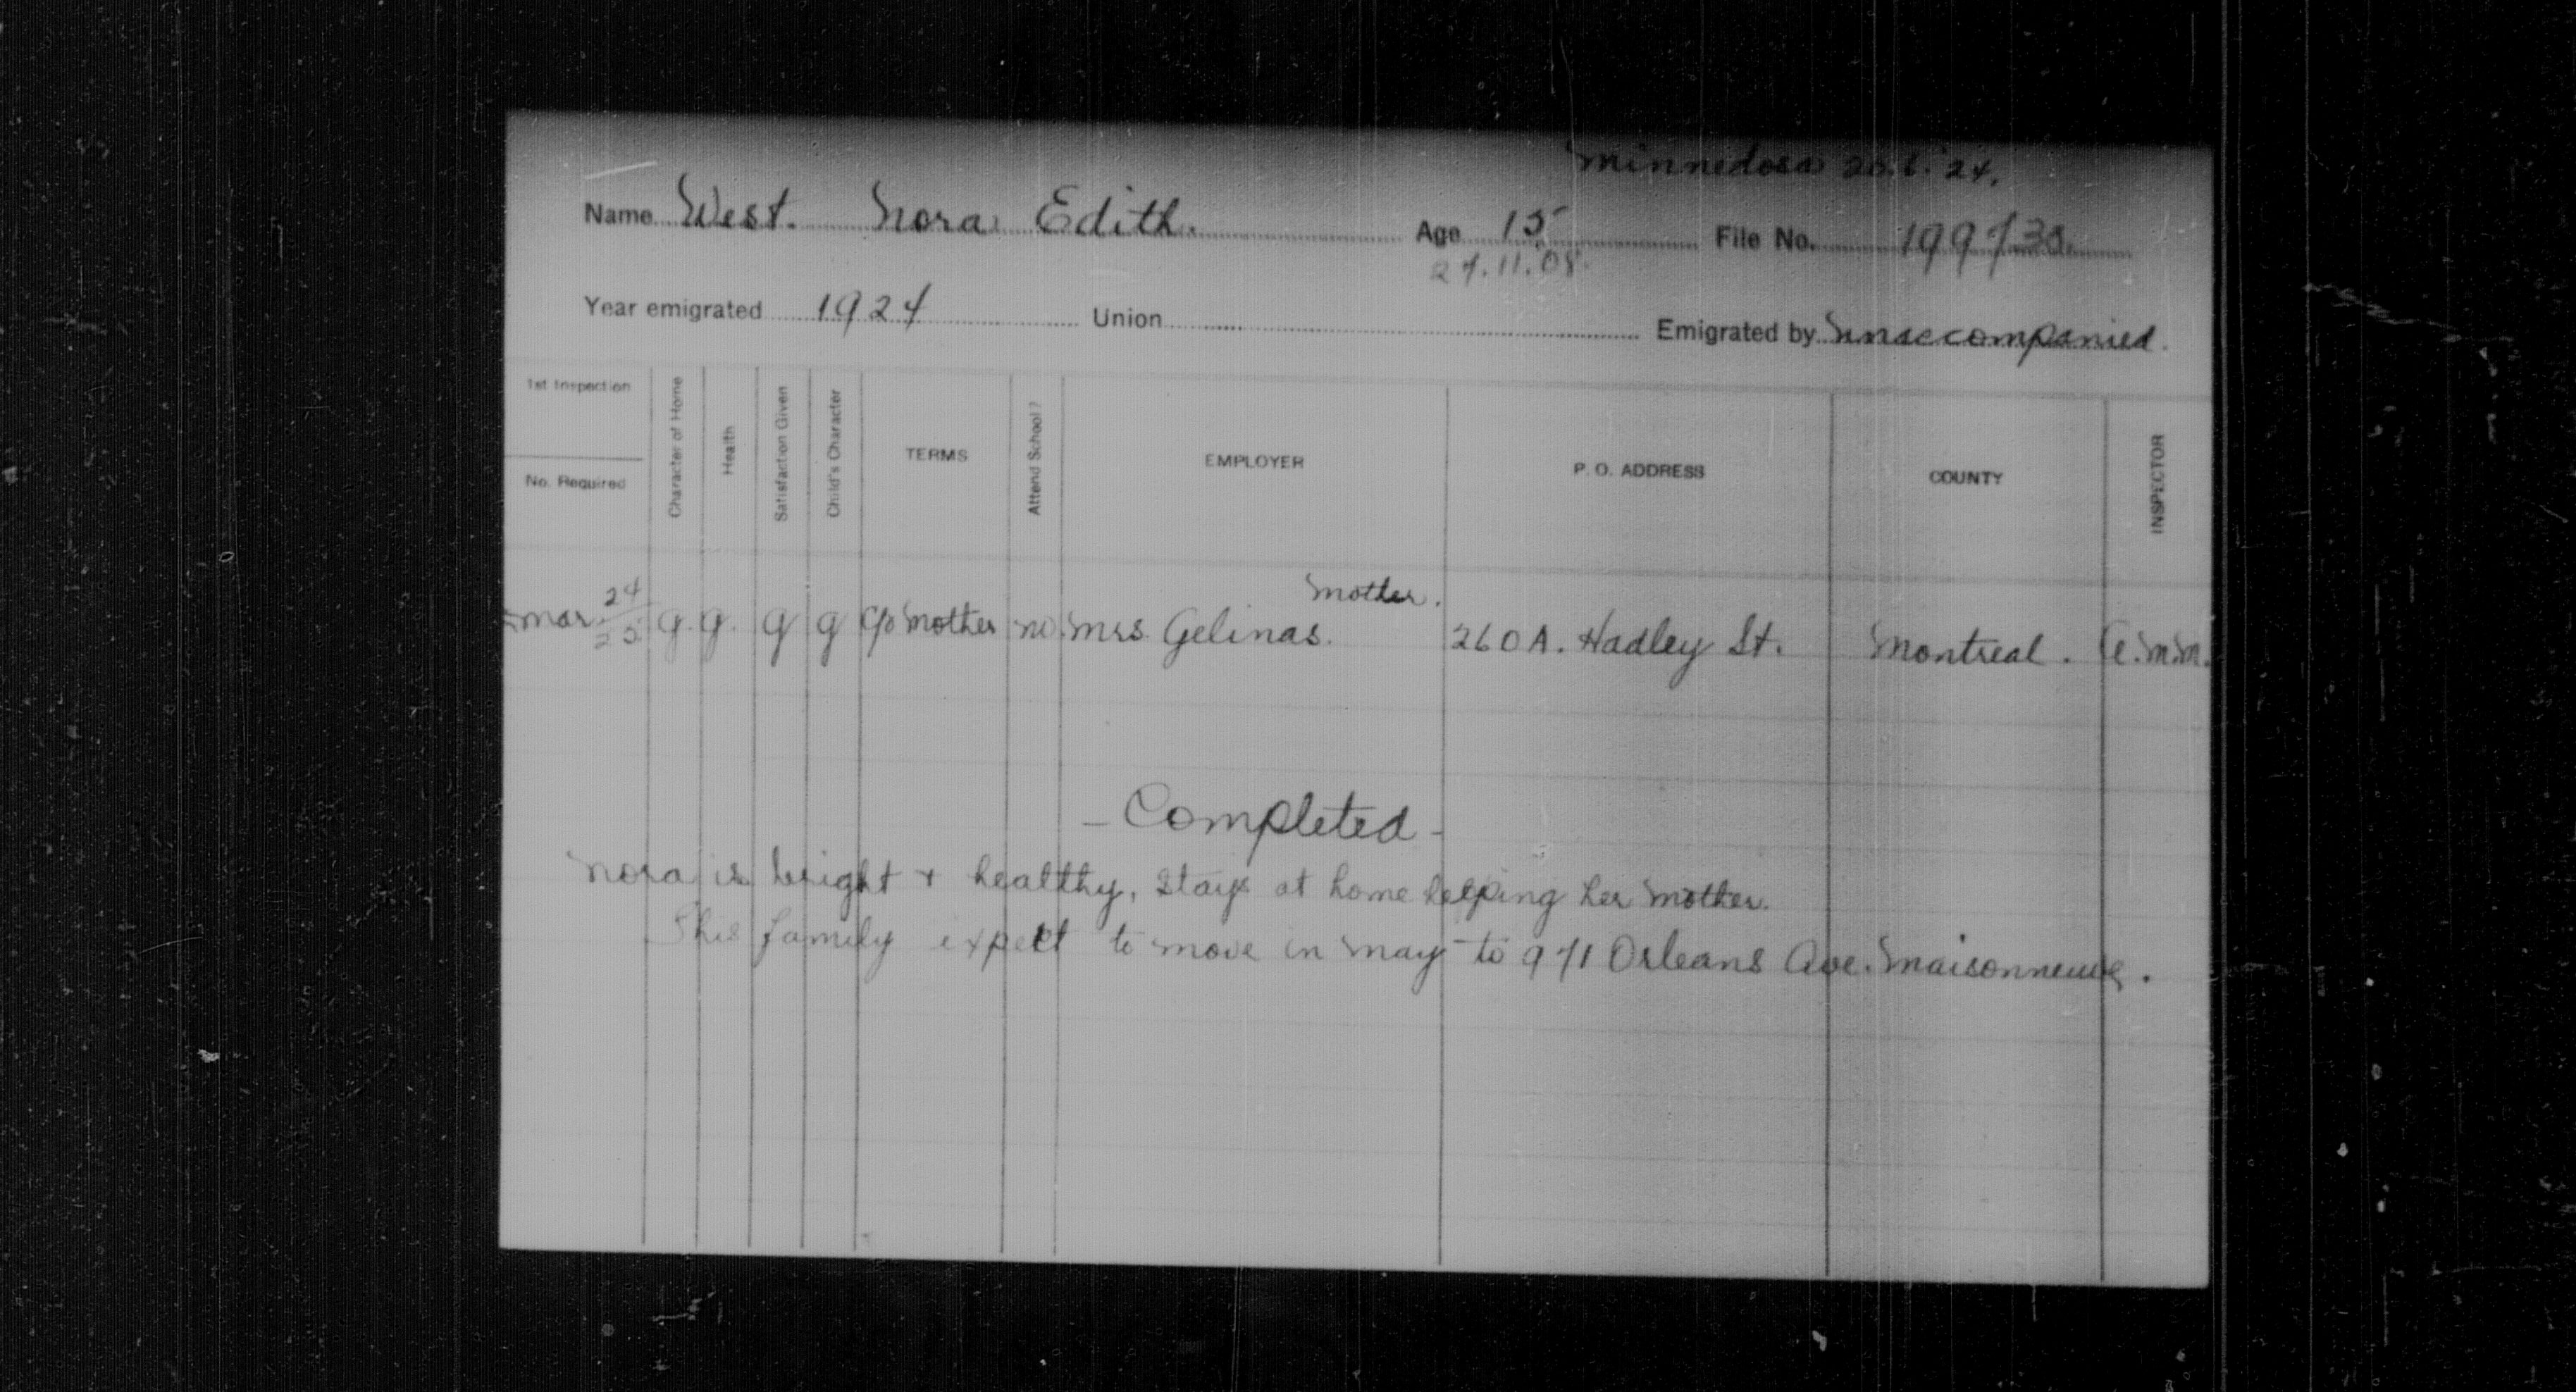 Minnedosa 20.6.'24.
Name West. Nora Edith. Age 15 File No. 199730.
27.11.08.
Year emigrated 1924 Union Emigrated by Unaccompanied.
1st Inspection
No. Required
Character of Home
Health
Satisfaction Given
Child's Character
TERMS
Attend School?
EMPLOYER
P. O. ADDRESS
COUNTY
INSPECTOR
Mother.
Mar. 24/25 g. g. g g c/o Mother no. Mrs Gelinas. 260A. Hadley St. Montreal. M.M.
- Completed -
Nora is bright + healthy, stays at home helping her mother.
This family expect to move in May to 971 Orleans Ave. Maisonneuve.